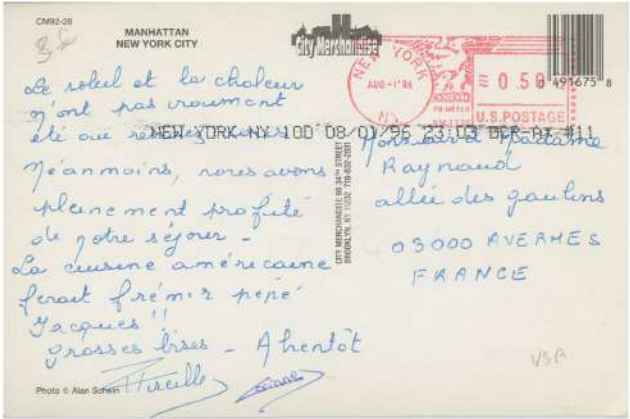 CM92-26
MANHATTAN
NEW YORK CITY
City Merchandise
NEW YORK
AUG-1'96
N.Y.
0.50
U.S. POSTAGE
0 491675 8
NEW YORK NY 100 08/01/96 23:03 #11
Le soleil et la chaleur
n'ont pas vraiment
été au
Néanmoins, nous avons
pleinement profité
de notre séjour -
La cuisine américaine
ferait frémir pépé
Jacques !!
grosses bises - A bientôt
Mireille
CITY MERCHANDISE 68 34TH STREET
BROOKLYN, NY 11232 718-832-2931
Monsieur & Madame
Raynaud
allée des gaulins
03000 AVERMES
FRANCE
USA
Photo © Alan Schein